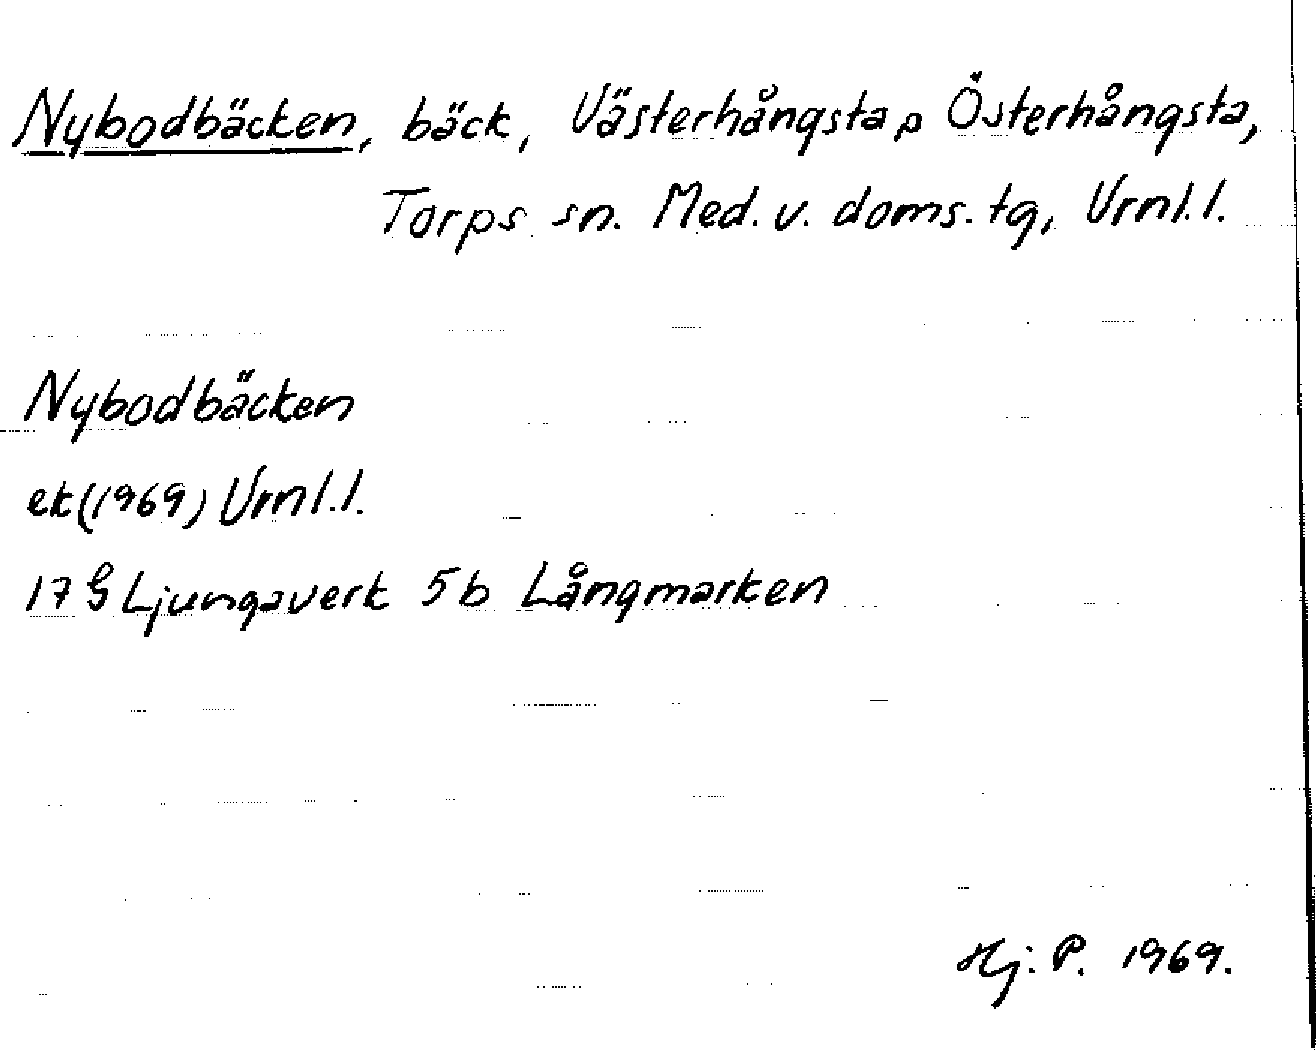 Nybodbäcken, bäck, Västerhångsta, p Österhångsta,
Torps sn. Med. v. doms. tg, Vrnl. l.
Nybodbäcken
ek (1969) Vrnl. l.
17 G Ljungaverk 5b Långmarken
Hj. P. 1969.